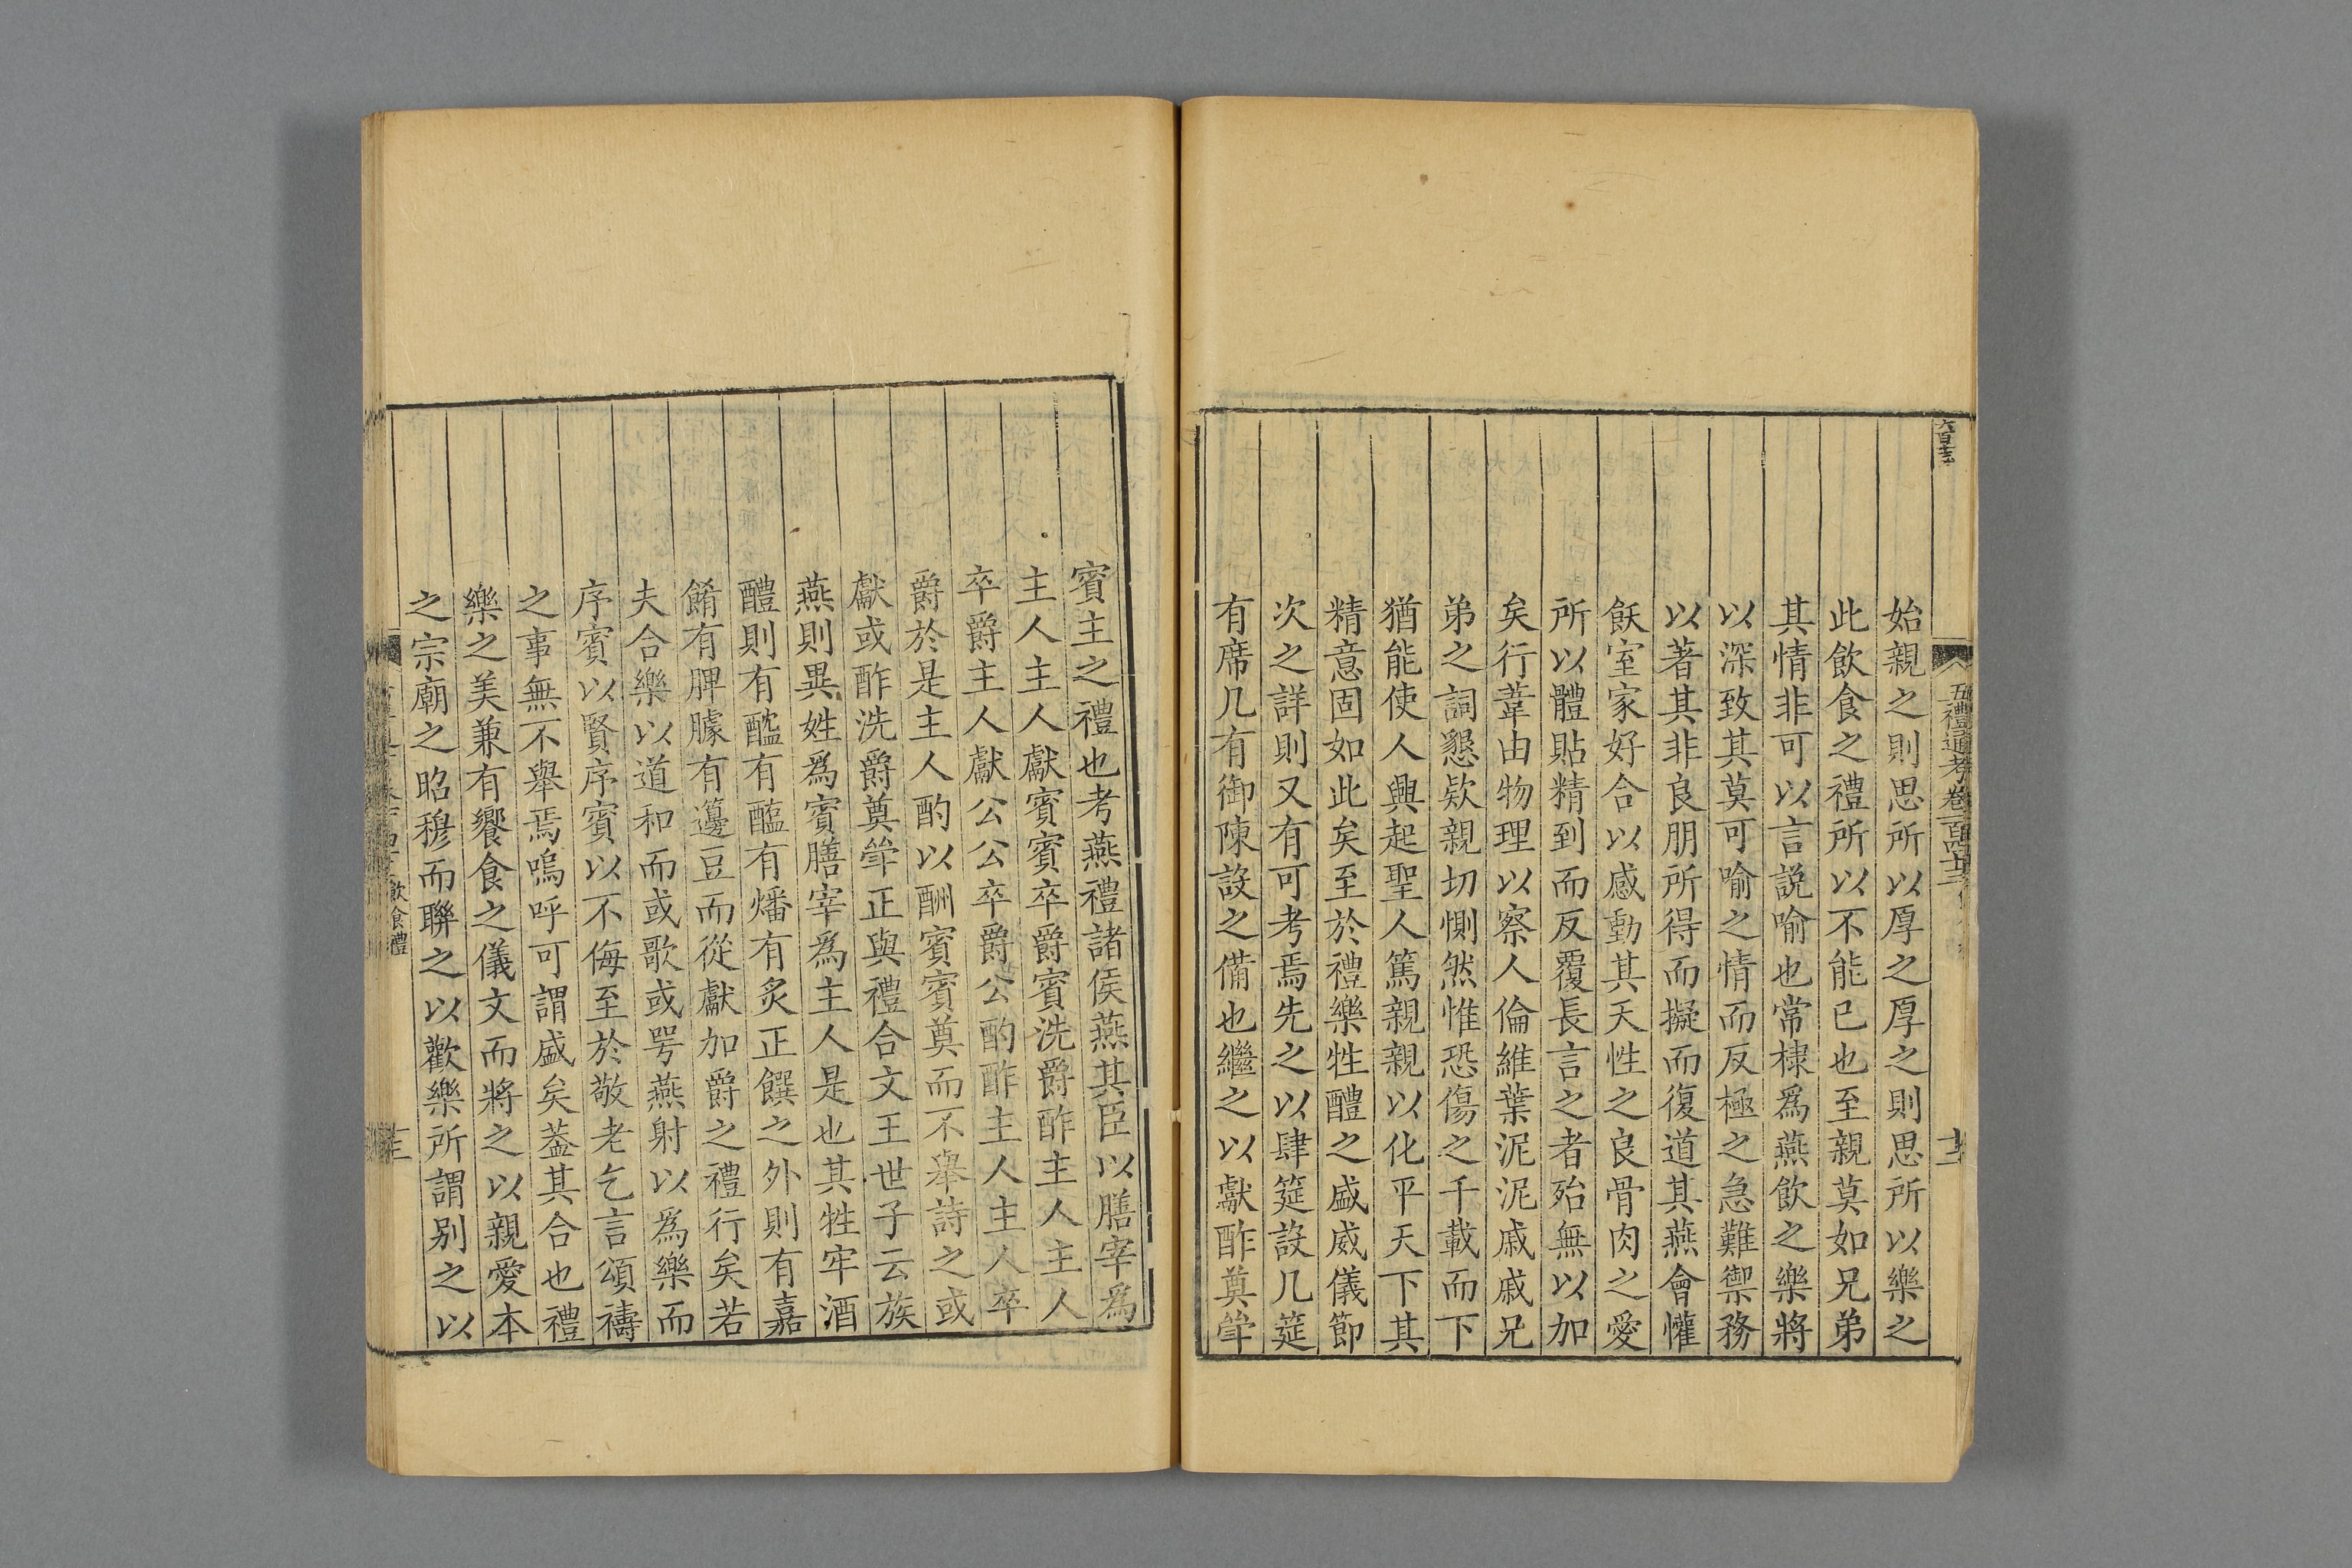 五禮通考卷一百四十三
始親之則思所以厚之厚之則思所以樂之
此飲食之禮所以不能已也至親莫如兄弟
其情非可以言説喻也常棣爲燕飲之樂將
以深致其莫可喻之情而反極之急難禦務
以著其非良朋所得而擬而復道其燕會懽
飫室家好合以感動其天性之良骨肉之愛
所以體貼精到而反覆長言之者殆無以加
矣行葦由物理以察人倫維葉泥泥戚戚兄
弟之詞懇欵親切惻然惟恐傷之千載而下
猶能使人興起聖人篤親親以化平天下其
精意固如此矣至於禮樂牲醴之盛威儀節
次之詳則又有可考焉先之以肆筵設几筵
有席几有御陳設之備也繼之以獻酢奠斝
賓主之禮也考燕禮諸侯燕其臣以膳宰爲
主人主人獻賓賓卒爵賓洗爵酢主人主人
卒爵主人獻公公卒爵公酌酢主人主人卒
爵於是主人酌以酬賓賓奠而不舉詩之或
獻或酢洗爵奠斝正與禮合文王世子云族
燕則異姓爲賓膳宰爲主人是也其牲牢酒
醴則有醓有醢有燔有炙正饌之外則有嘉
餚有脾臄有籩豆而從獻加爵之禮行矣若
夫合樂以道和而或歌或咢燕射以爲樂而
序賓以賢序賓以不侮至於敬老乞言頌禱
之事無不舉焉嗚呼可謂盛矣葢其合也禮
樂之美兼有饗食之儀文而將之以親愛本
之宗廟之昭穆而聯之以歡樂所謂别之以
飲食禮